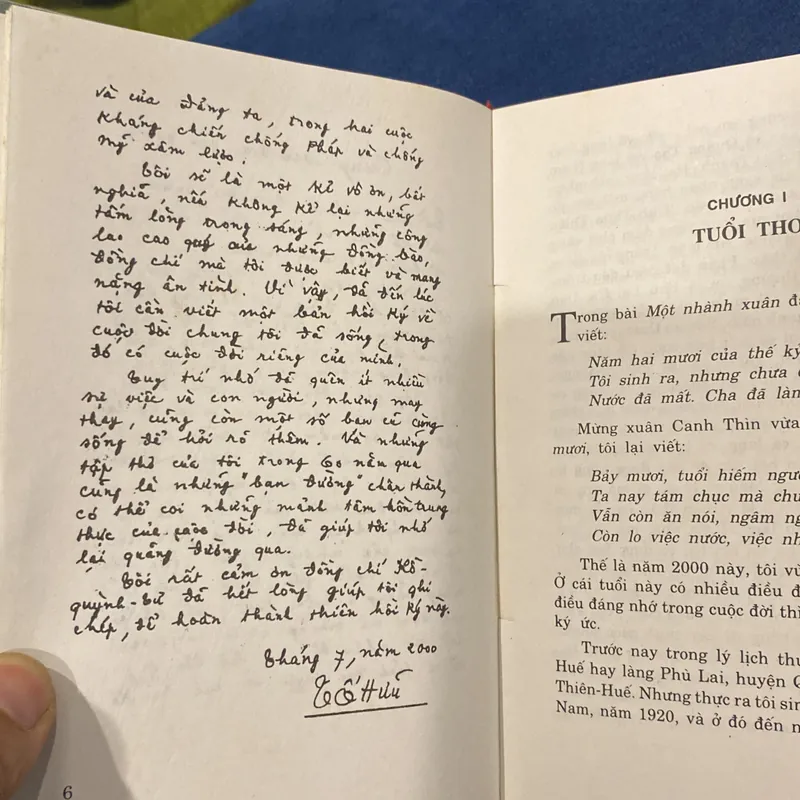 và của Đảng ta, trong hai cuộc
kháng chiến chống Pháp và chống
Mỹ xâm lược.
Tôi sẽ là một kẻ vô ơn, bất
nghĩa, nếu không kể lại những
tấm lòng trong sáng, những công
lao cao quý của những đồng bào,
đồng chí mà tôi được biết và mang
nặng ân tình. Vì vậy, đã đến lúc
tôi cần viết một bản hồi ký về
cuộc đời chúng tôi đã sống, trong
đó có cuộc đời riêng của mình.
Tuy trí nhớ đã quên ít nhiều
sự việc và con người, nhưng may
thay, cũng còn một số bạn cũ cùng
sống để hỏi rõ thêm. Và những
tập thơ của tôi trong 60 năm qua
cũng là những "bạn đường" chân thành,
có thể coi những mảnh tâm hồn trung
thực của cuộc đời, đã giúp tôi nhớ
lại quãng đường qua.
Tôi rất cảm ơn đồng chí Hồ-
quỳnh-Tư đã hết lòng giúp tôi ghi
chép, để hoàn thành thiên hồi ký này.
Tháng 7, năm 2000
Tố Hữu
6
CHƯƠNG I
TUỔI THƠ
Trong bài Một nhành xuân
viết:
Năm hai mươi của thế kỷ
Tôi sinh ra, nhưng chưa
Nước đã mất. Cha đã làm
Mừng xuân Canh Thìn vừa
mươi, tôi lại viết:
Bảy mươi, tuổi hiếm
Ta nay tám chục mà
Vẫn còn ăn nói, ngâm
Còn lo việc nước, việc
Thế là năm 2000 này, tôi
Ở cái tuổi này có nhiều điều
điều đáng nhớ trong cuộc đời
ký ức.
Trước nay trong lý lịch
Huế hay làng Phù Lai, huyện
Thiên-Huế. Nhưng thực ra tôi
Nam, năm 1920, và ở đó đến